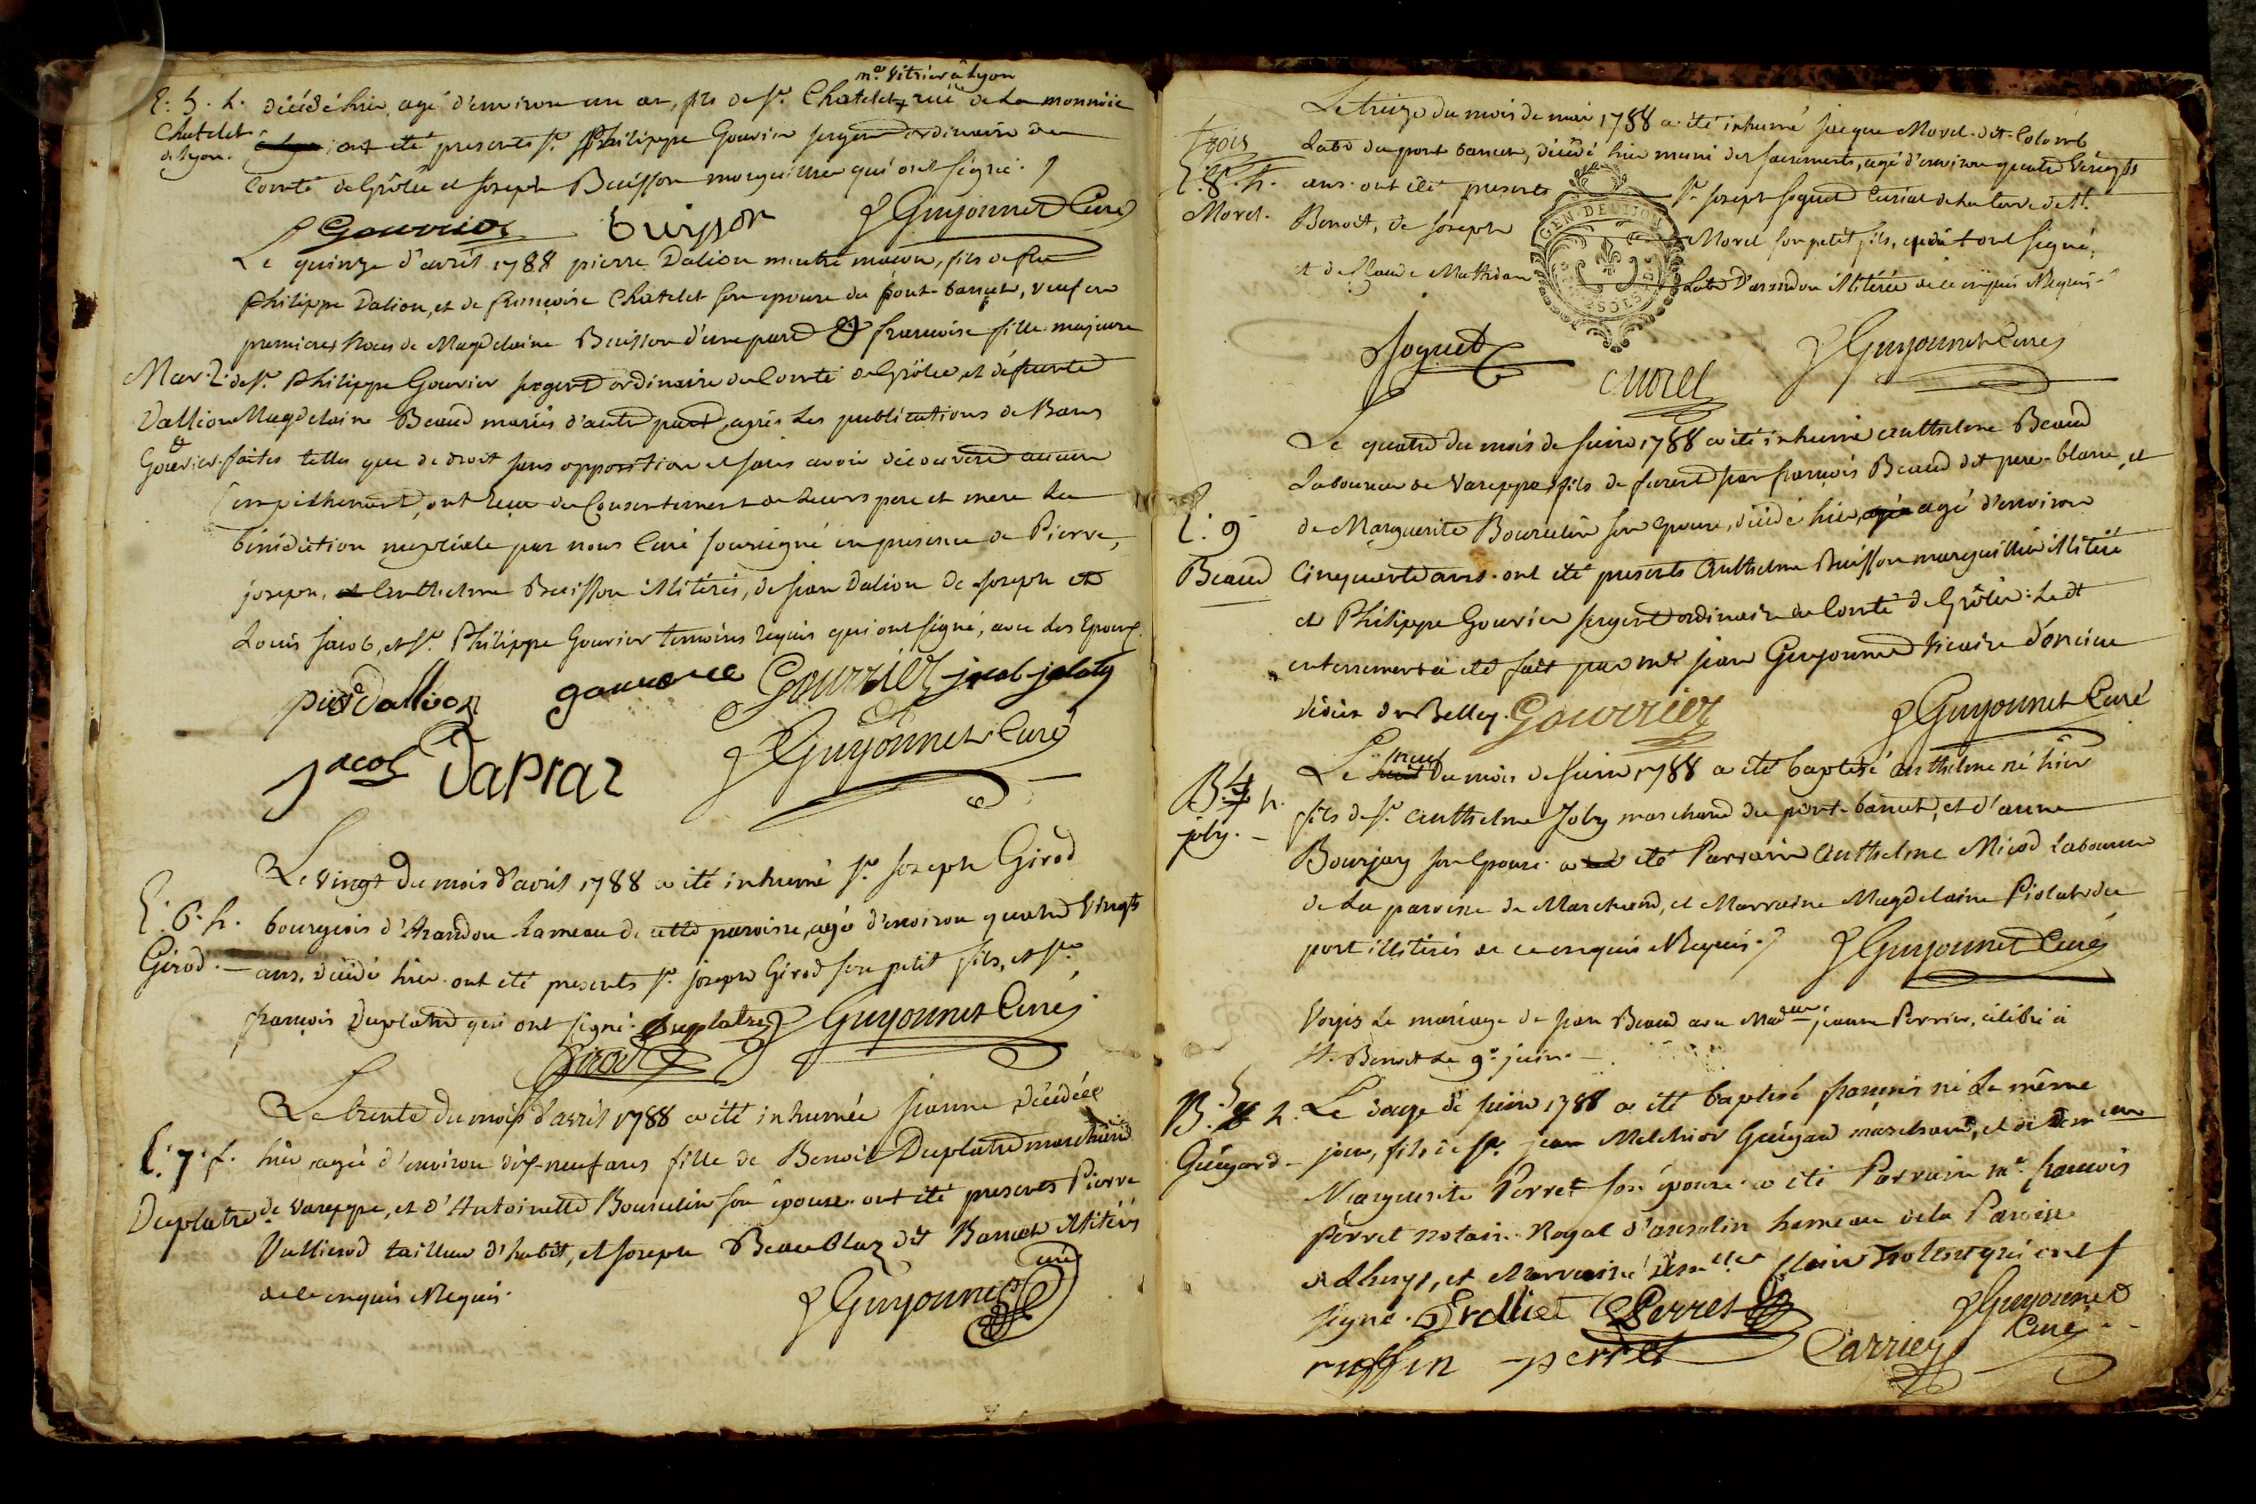 me. vitrier à Lyon
E. 5. h. décédé hier agé d'environ un an, fils de sr. Chatelet rue de La monnoie
Chatelet
de Lyon. ont été presents sr. Philippe Gourier sergent ordinaire du
Comté de Grôlée et Joseph Buisson marguillier qui ont signé.
Gourrier buisson Guyonnet Curé
Le quinze d'avril 1788 pierre Dalion maitre maçon, fils de feu
Philippe Dalion, et de françoise Chatelet son epouse du pont-bancet, veuf en
premieres Noces de Magdelaine Buisson d'une part & francoise fille majeure
Mar. 2. de sr. Philippe Gourier sergent ordinaire du Comté de Grôlée, et défunte
Dallion Magdelaine Beaud mariés d'autre part, après Les publications de Bans
&
Gourier. faites telles que de droit sans opposition et sans avoir découvert aucun
empêchement, ont reçu du Consentement de Leurs pere et mere La
bénédiction nuptiale par nous Curé soussigné en presence de Pierre,
joseph, et Anthelme Buisson illitérés, de jean Dalion de Joseph et
Louis Jacob, et sr. Philippe Gourier temoins requis qui ont signé, avec les Epoux.
Dallion Gourrier
Jacob Dapraz Guyonnet Curé
Le vingt du mois d'avril 1788 a été inhumé sr. Joseph Girod
E. 6. h. bourgeois d'Arandon hameau de cette paroisse, agé d'environ quatre Vingts
Girod. ans, décédé hier. ont été presents sr. joseph Girod son petit fils, et sr.
françois Duplatre qui ont signé. Duplatre Guyonnet Curé
Girod
Le trente du mois d'avril 1788 a été inhumée Jeanne, décédée
E. 7. f. hier agée d'environ dix-neuf ans fille de Benoit Duplatre marchand
Duplatre de Vareppe, et d'Antoinette Bourcelin son épouse. ont été presents Pierre
Vullierod tailleur d'habit, et Joseph Beau Blaz dit Bancet illitérés
de ce enquis Requis.
Guyonnet Curé
Le treize du mois de mai 1788 a été inhumé jacque Morel-dit-Colomb
Labr du pont bancet, décédé hier muni des sacrements, agé d'environ quatre Vingts
E. 8. h. ans. ont été presents sr. joseph Joguet Curial de La Terre de St.
Morel. Benoit, de Joseph Morel son petit fils, qui ont signé,
et de Claude Mathian Labr. d'arandon illitérée de ce enquis Requis.
GEN. DE DIJON
Joguet Morel Guyonnet Curé
Le quatre du mois de Juin 1788 a été inhumé anthelme Beaud
Laboureur de Vareppe, fils de furent jean françois Beaud dit pere-blanc, et
E. 9 de Marguerite Bourcelin son Epouse, décédé hier, agé d'environ
Beaud Cinquante ans. ont été presents Anthelme Buisson marguillier illiteré
et Philippe Gourier sergent ordinaire du Comté de Grôlée: Le dt
enterrement a été fait par mre jean Guyonnet vicaire d'oncieu
diocese de Belley. Gourrier Guyonnet Curé
neuf
Le du mois de Juin 1788 a été baptisé anthelme né hier
B. 4 h. fils de sr. Anthelme Joly marchand du pont-bancet, et d'anne
joly. Bourjay son Epouse. a été Parrain Anthelme Micod Laboureur
de La paroisse de Marchand, et Marraine Magdelaine Piolat du
port illitérés de ce enquis Requis. Guyonnet Curé
Voyés Le mariage de jean Beaud avec Made jeanne Perrier, célébré à
St. Benoit Le 9e. juin.
B. 5 h. Le douze de juin 1788 a été baptisé françois né Le même
Guigard. jour, fils de sr. jean Melchior Guigard marchand, et de
Marguerite Perret son épouse. a été Parrain Me. françois
Perret Notaire Royal d'ansolin hameau de La Paroisse
de Lhuys, et Marraine qui ont
signé. Perret Guyonnet
Curé
ruffin perret Carrier